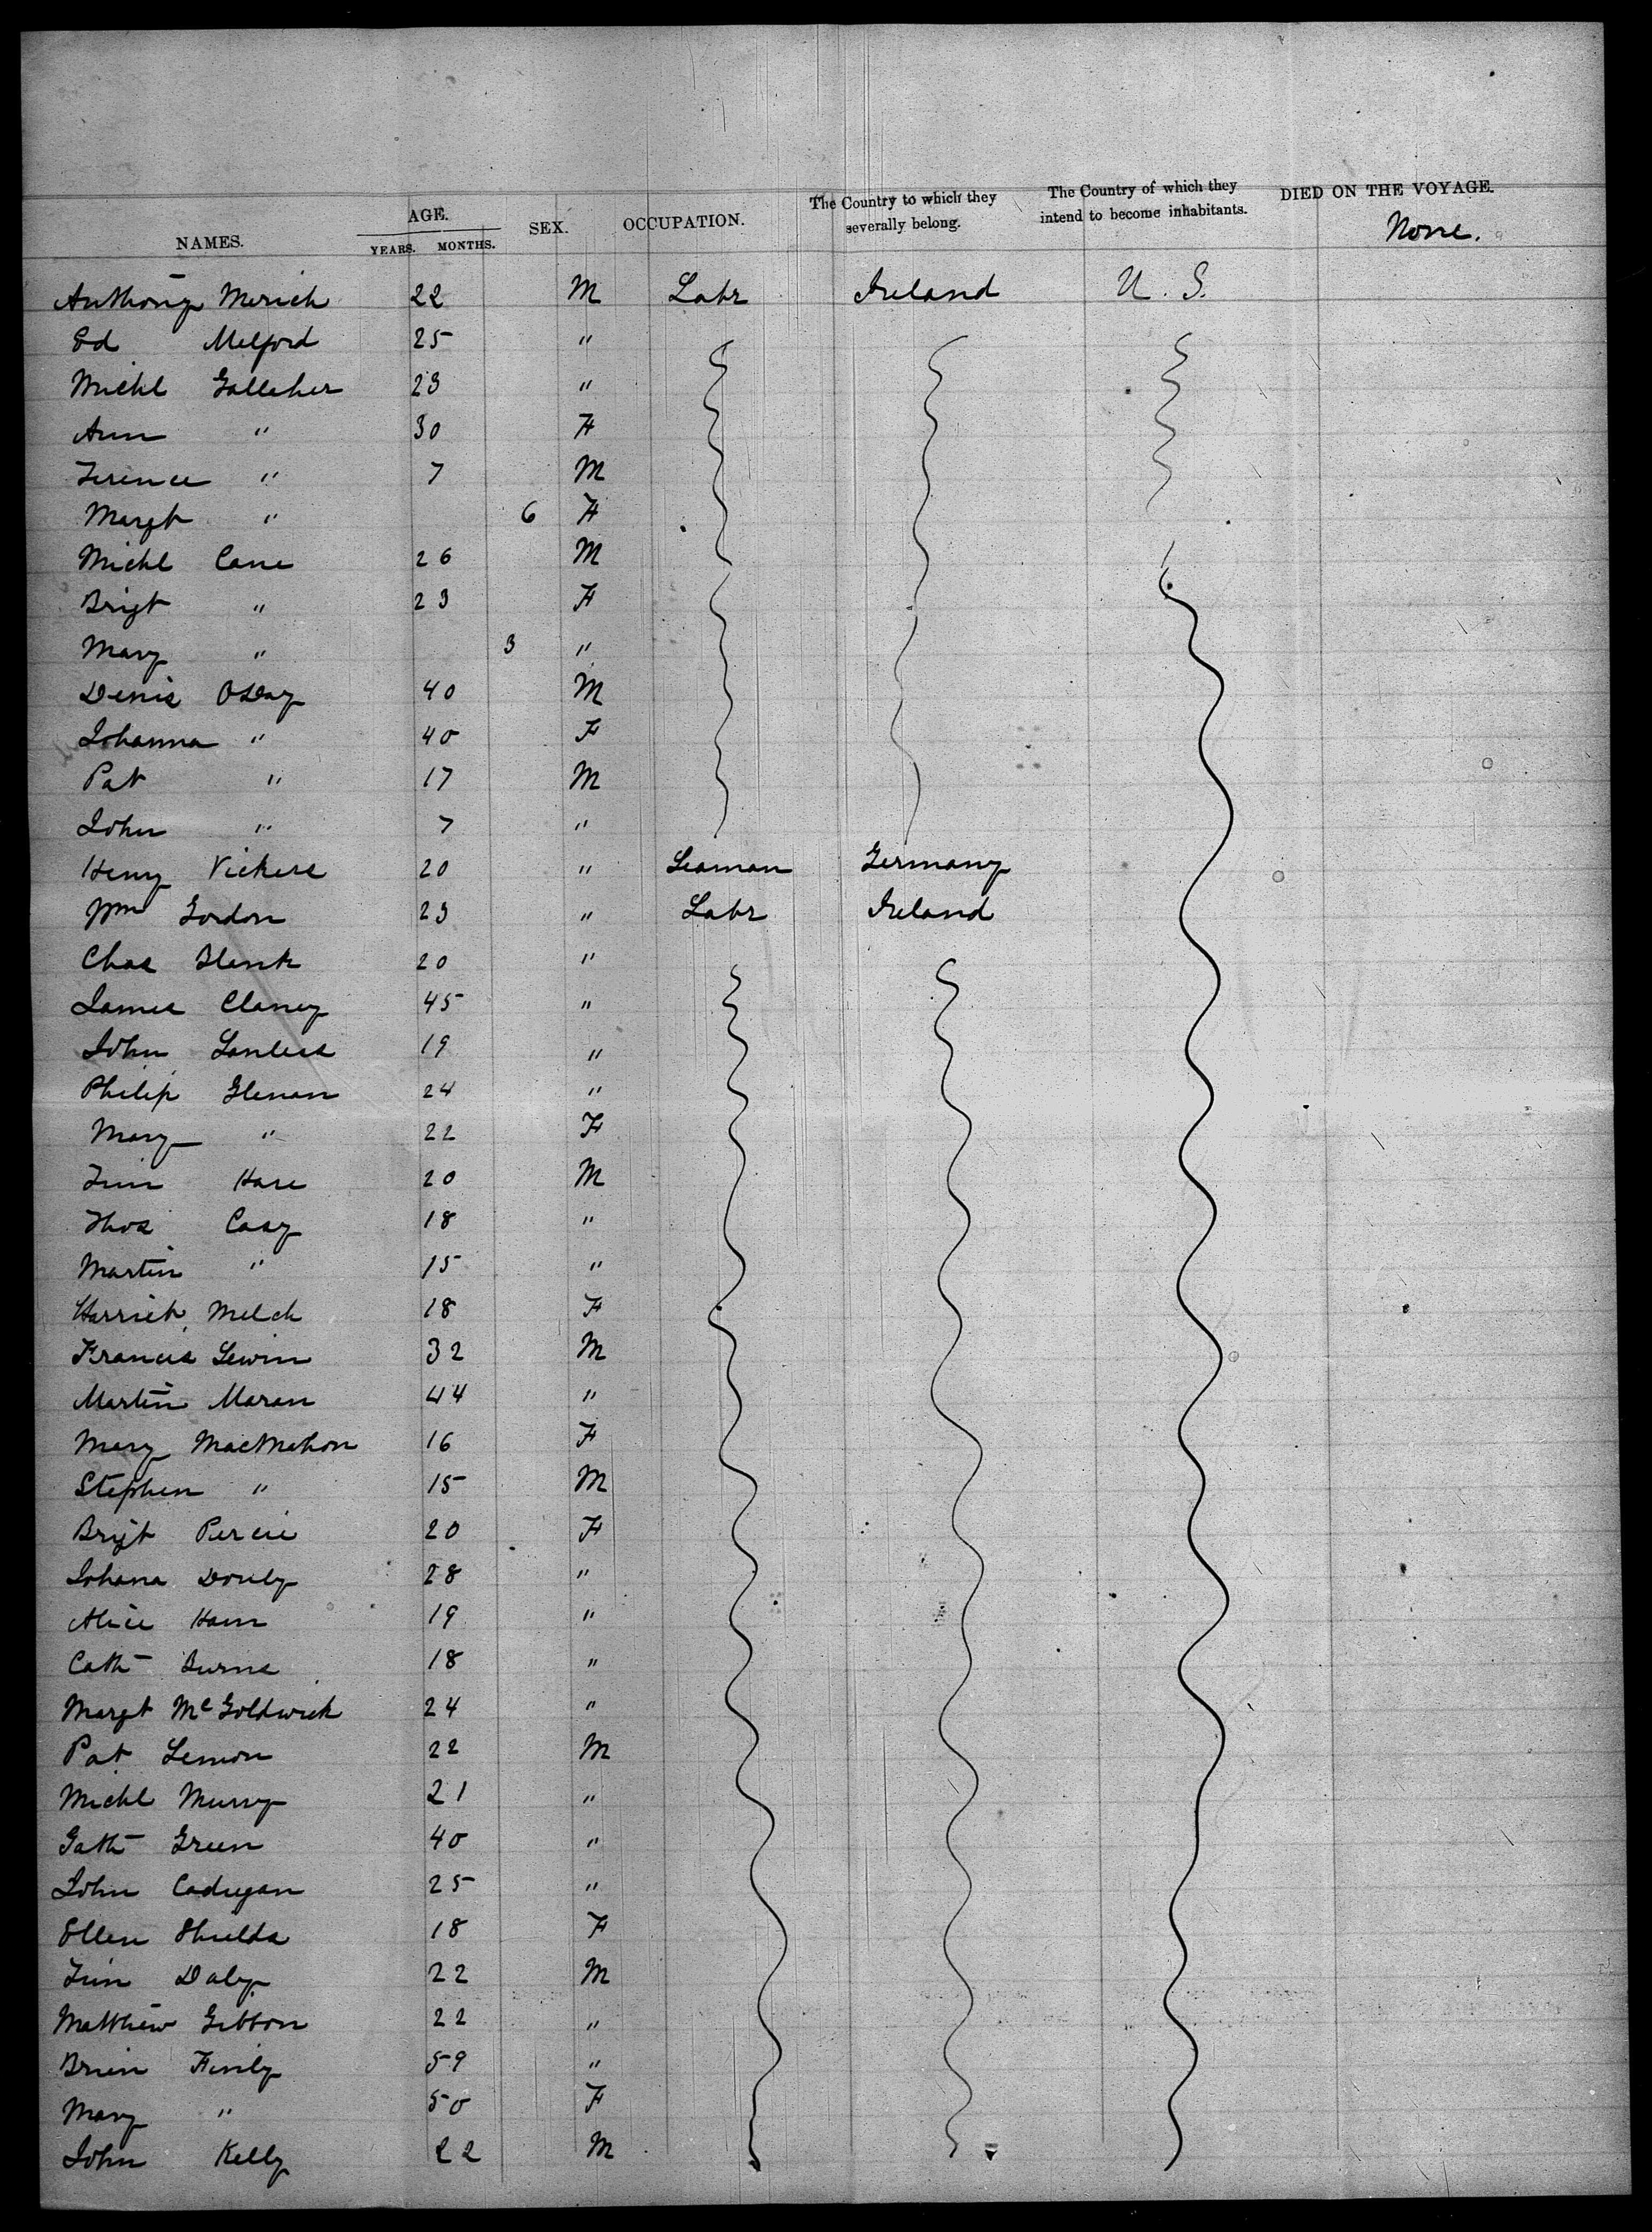 NAMES. AGE. YEARS. MONTHS. SEX. OCCUPATION. The Country to which they severally belong. The Country of which they intend to become inhabitants. DIED ON THE VOYAGE.
None.
Anthony Merich 22 M Labr Ireland U. S.
Ed Melford 25 "
Michl Galleher 23 "
Ann " 30 F
Terence " 7 M
Margt " 6 F
Michl Cane 26 M
Brigt " 23 F
Mary " 3 "
Denis ODay 40 M
Johanna " 40 F
Pat " 17 M
John " 7 "
Henry Vickers 20 " Seaman Germany
Wm Gordon 23 " Labr Ireland
Chas 20 "
James Clancy 45 "
John Lanless 19 "
Philip Glenan 24 "
Mary " 22 F
Tim Hare 20 M
Thos Casy 18 "
Martin " 15 "
Harriet Melch 18 F
Francis Lewin 32 M
Martin Maran 44 "
Mary MacMahon 16 F
Stephen " 15 M
Brigt Percie 20 F
Johana 28 "
Alice Ham 19 "
Cath Burns 18 "
Margt McGoldwick 24 "
Pat Lemon 22 M
Michl Murry 21 "
Gath Green 40 "
John Cadugan 25 "
Ellen Shulds 18 F
Tim Daly 22 M
Matthew Gibbon 22 "
Brien Finly 59 "
Mary " 50 F
John Kelly 22 M